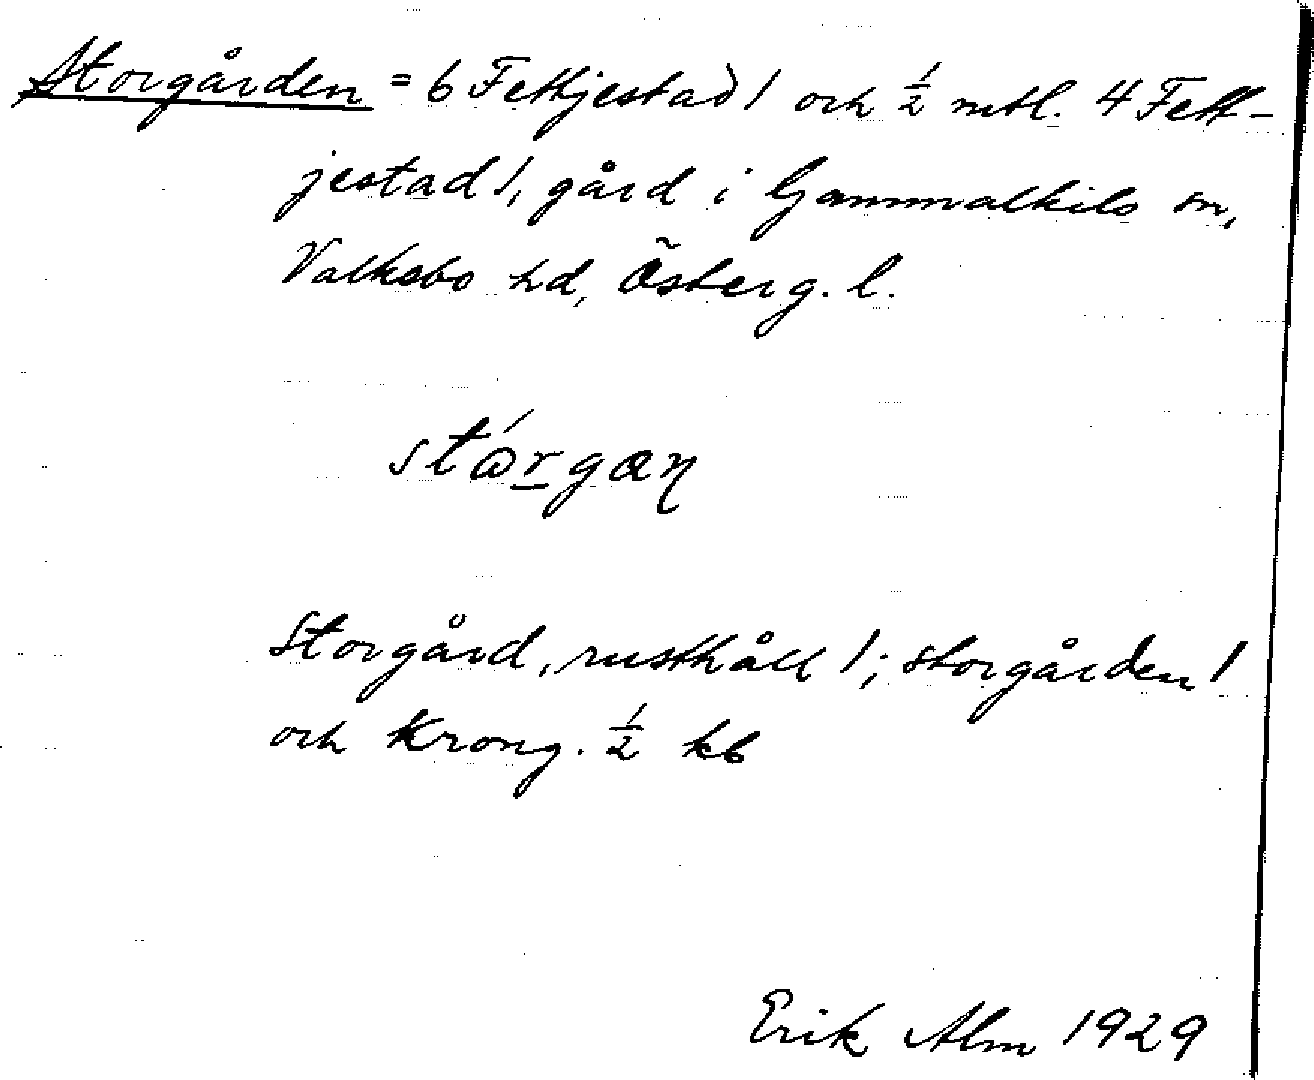 Storgården = 6 Fettjestad 1 och ½ mtl. 4 Fett-
jestad 1, gård i Gammalkils sn,
Valkebo hd, Österg. l.
stårgæn
Storgård, rusthåll 1; Storgården 1
och Krong. ½ kb
Erik Alm 1929